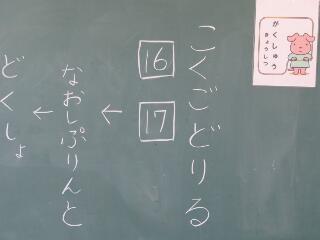 こくごどりる
16
17
←
なおしぷりんと
←
どくしょ
がくしゅう
きょうしつ